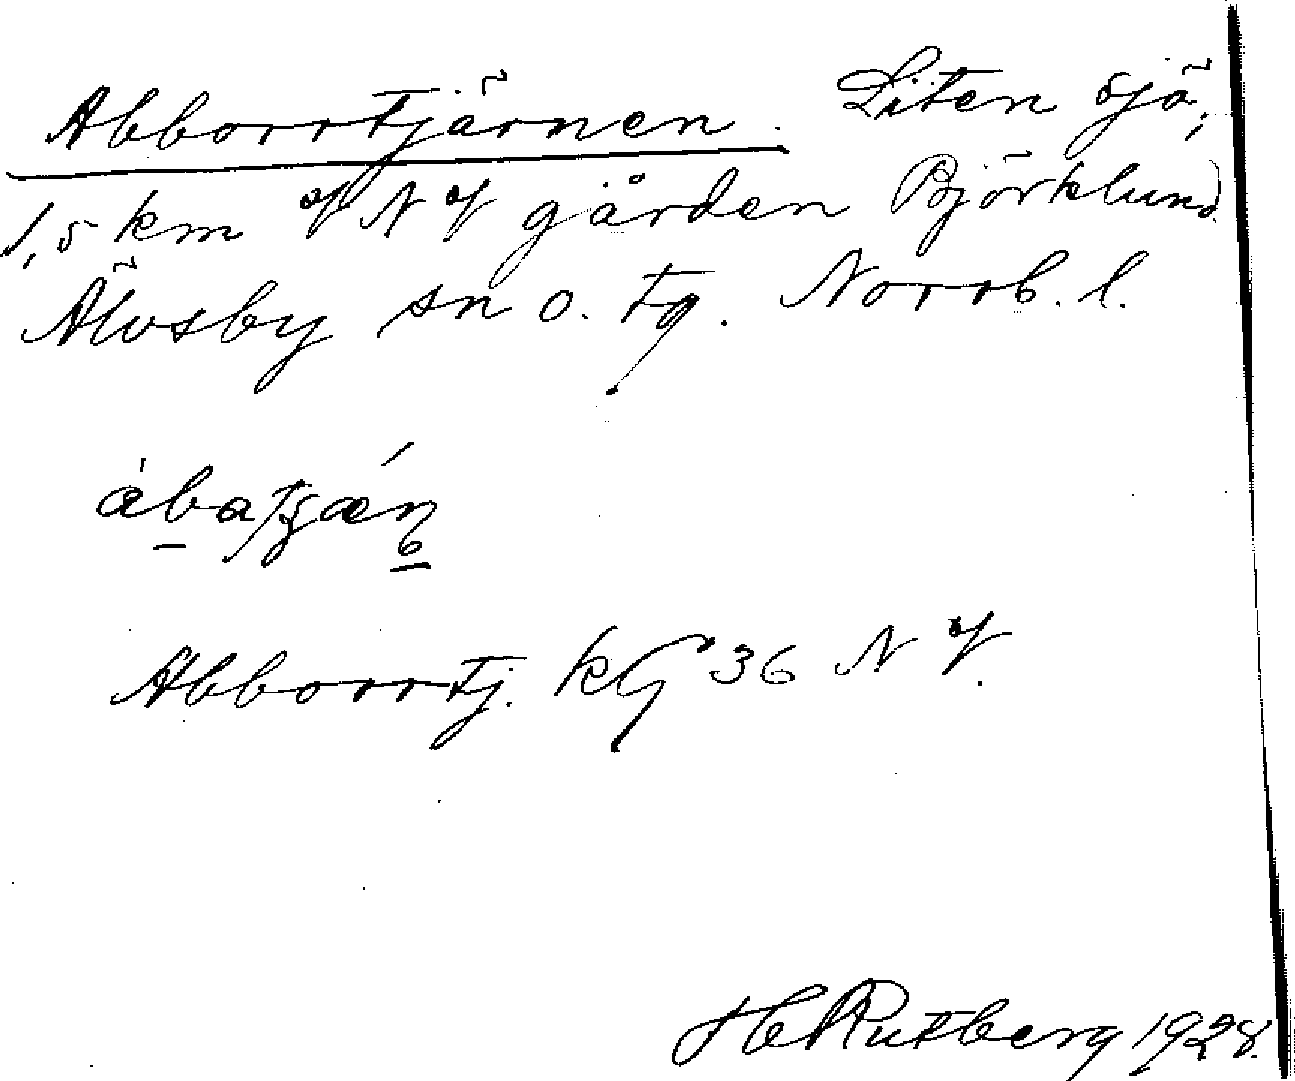 Abborrtjärnen. Liten sjö;
1,5 km of N of gården Björklund.
Älvsby sn o. tg. Norrb. l.
Abborrtj. kG 36 N of.
H Rutberg 1928.